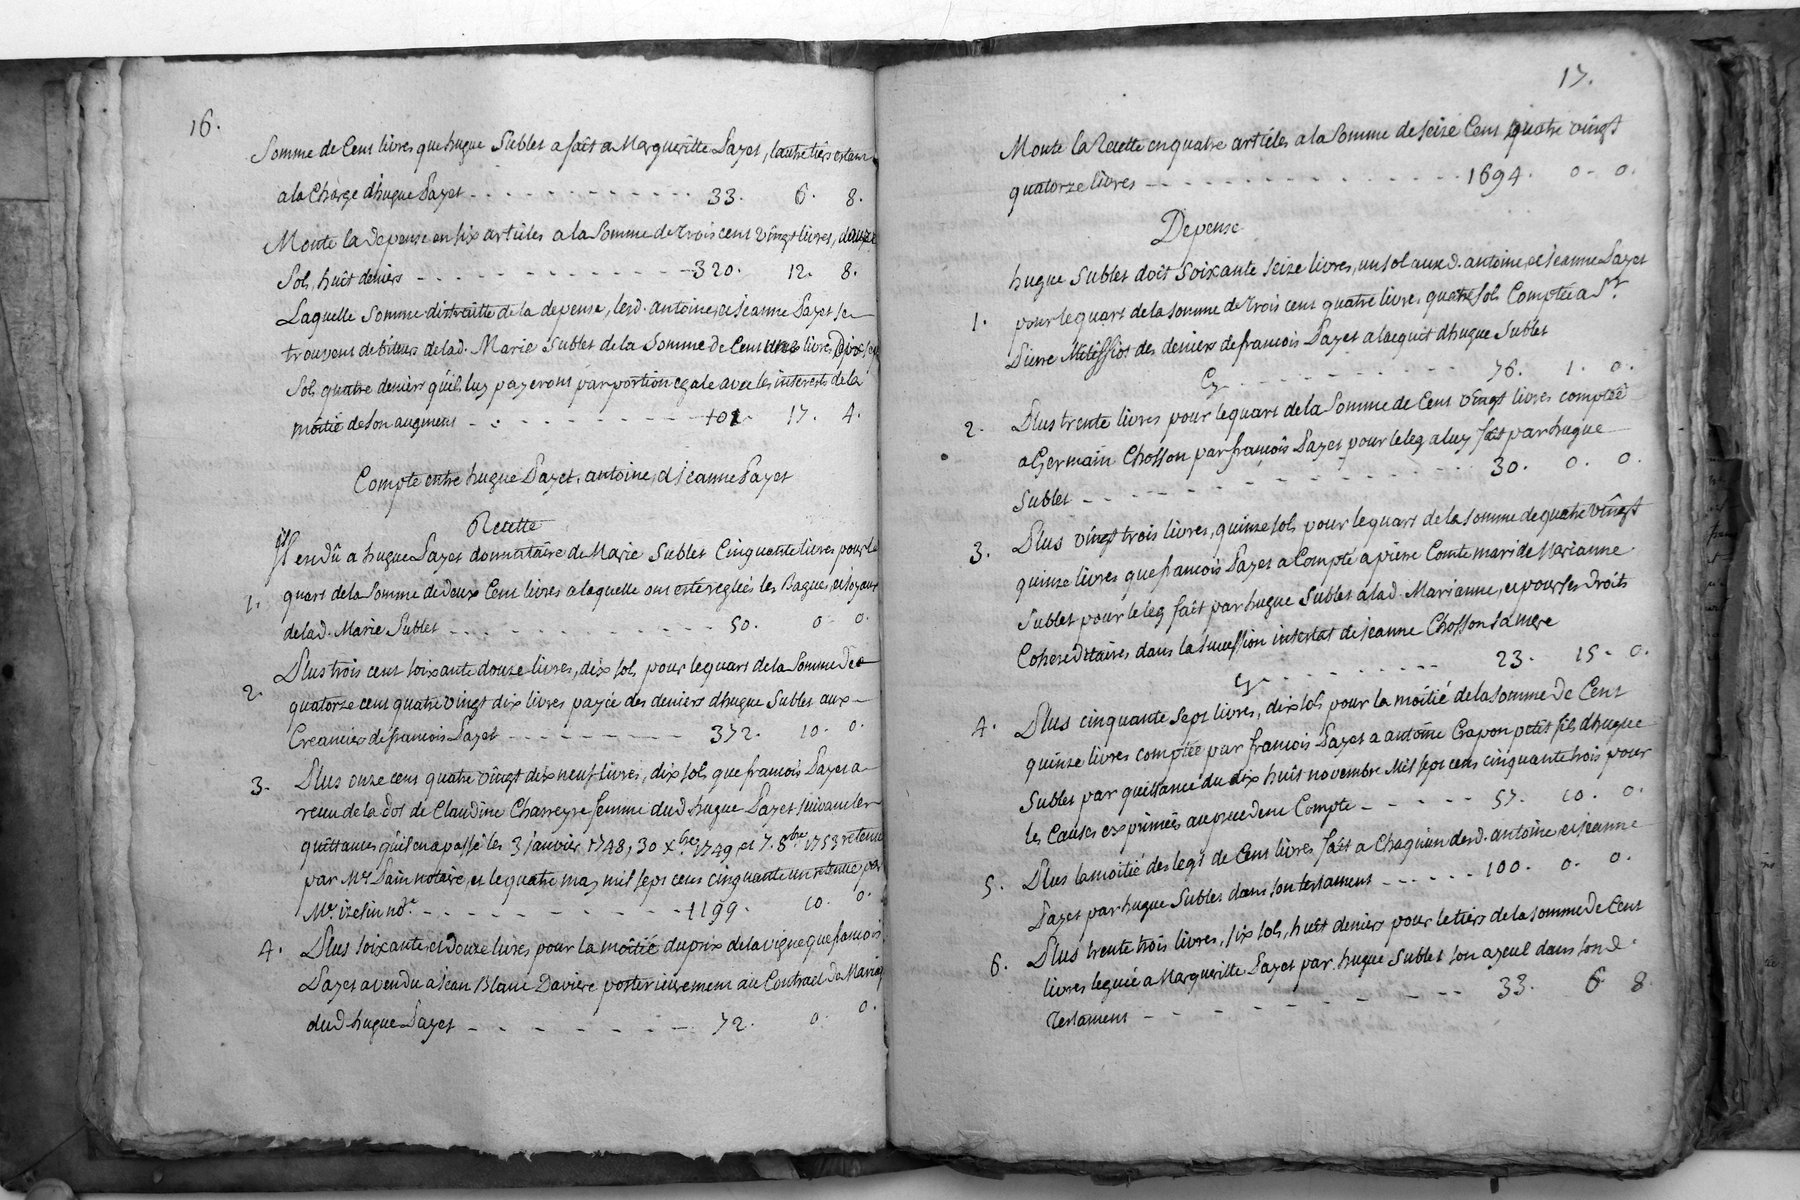 16.
Somme de Cent livres que hugue Sublet a fait a Marguerîtte Payet, l'autre tiers estant
a la Charge d'hugue Payet - - - - - - - - - - 33. 6. 8.
Monte la depense en six articles a la Somme de trois cent vîngt livres, douze
Sol, huît deniers - - - - - - - - - - - 320. 12. 8.
Laquelle Somme distraitte de la depense, lesd. antoine, et jeanne Payet se
trouvent debiteurs de lad. Marie Sublet de la Somme de Cent une livres, dix sept
Sol, quatre deniers qu'ils luy payeront par portion egale avec les interests de la
moîtié de son augment - - - - - - - - - - 101. 17. 4.
Compte entre hugue Payet, antoine, et jeanne Payet
Recette
Il en dû a hugue Payet donnataire de Marie Sublet Cinquante livres pour le
1. quart de la Somme de deux Cent livres a laquelle ont esté reglées les Bagues, et joyaux
de lad. Marie Sublet - - - - - - - - - - 50. 0. 0.
Plus trois cent soixante douze livres, dix sols, pour le quart de la Somme de
2. quatorze cent quatre vingt dix livres payée des deniers d'hugue Sublet aux
Creanciers de francois Payet - - - - - - - - 372. 10. 0.
3. Plus onze cent quatre vîngt dix neuf livres, dix sols que francois Payet a
recu de la dot de Claudine Charreyre femme dud. hugue Payet suivant les
quîttances qu'il en a passé les 3 janvier 1748, 30 xbre 1749 et 7. 8bre 1753 retenue
par Mr. Pain notaire, et le quatre may mil sept cent cinquante un retenue par
Mr. izelin nore. - - - - - - - - - - 1199. 10. 0.
4. Plus soixante et douze livres pour la moîtié du prix de la vigne que francois
Payet a vendu a jean Blanc Daviere posterieurement au Contract de Mariage
dud. hugue Payet - - - - - - - - - 72. 0. 0.
17.
Monte la Recette en quatre articles a la Somme de seize Cent quatre vingt
quatorze livres - - - - - - - - - - - 1694. 0. 0.
Depense
hugue Sublet doit Soixante seize livres, un sol auxd. antoine, et jeanne Payet
1. pour le quart de la somme de trois cent quatre livres quatre sols Comptée a Sr.
Pierre des deniers de francois Payet a lacquit d'hugue Sublet
Cy - - - - - - - - - - 76. 1. 0.
2. Plus trente livres pour le quart de la Somme de Cent vingt livres comptée
a Germain Chosson par françois Payet pour le leg a luy fait par hugue
Sublet - - - - - - - - - - - - 30. 0. 0.
3. Plus vingt trois livres, quinze sols pour le quart de la somme de quatre vîngt
quinze livres que francois Payet a Compté a pierre Comte mari de Marianne
Sublet pour le leg fait par hugue Sublet a lad. Marianne, et pour ses Droits
Cohereditaires dans la succession intestat de jeanne Chosson sa mere
Cy - - - - - - - 23. 15. 0.
4. Plus cinquante sept livres, dix sols pour la moîtié de la somme de Cent
quinze livres comptée par francois Payet a antoine Crapon petît fils d'hugue
Sublet par quittance du dix huît novembre Mil sept cent cinquante trois pour
les Causes exprimées au precedent Compte - - - - - 57. 10. 0.
Plus la moitié des legs de Cent livres fait a Chaqu'un desd. antoine, et jeanne
5. Payet par hugue Sublet dans son testament - - - - - 100. 0. 0.
Plus trente trois livres, six sols, huît deniers pour le tiers de la somme de Cent
6. livres leguée a Marguerîtte Payet par hugue Sublet son ayeul dans sond.
Testament - - - - - - - - - - 33. 6. 8.